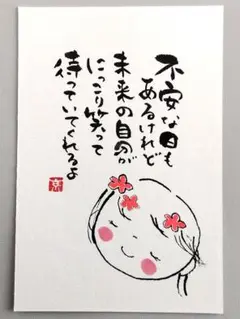 不安な日も
あるけれど
未来の自分が
にっこり笑って
待っていてくれるよ
京